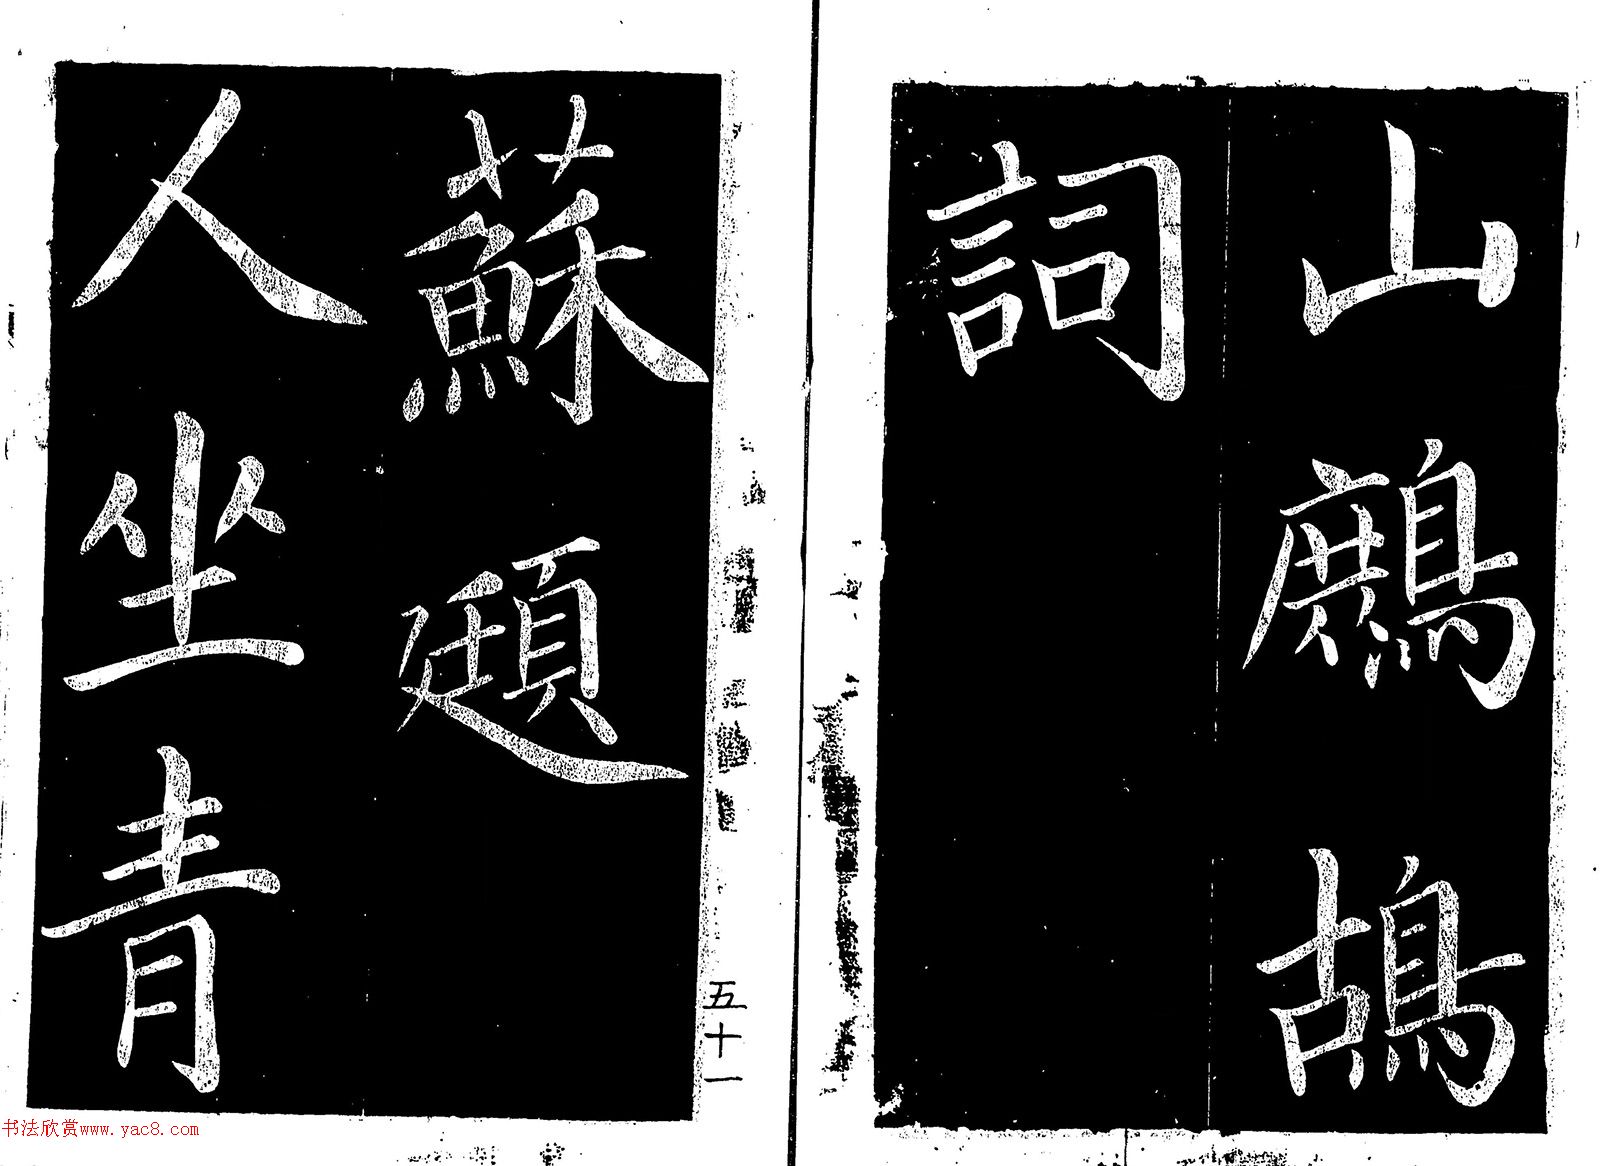 山鷓鴣
詞
蘇頲
人坐青
五十一
书法欣赏www.yac8.com